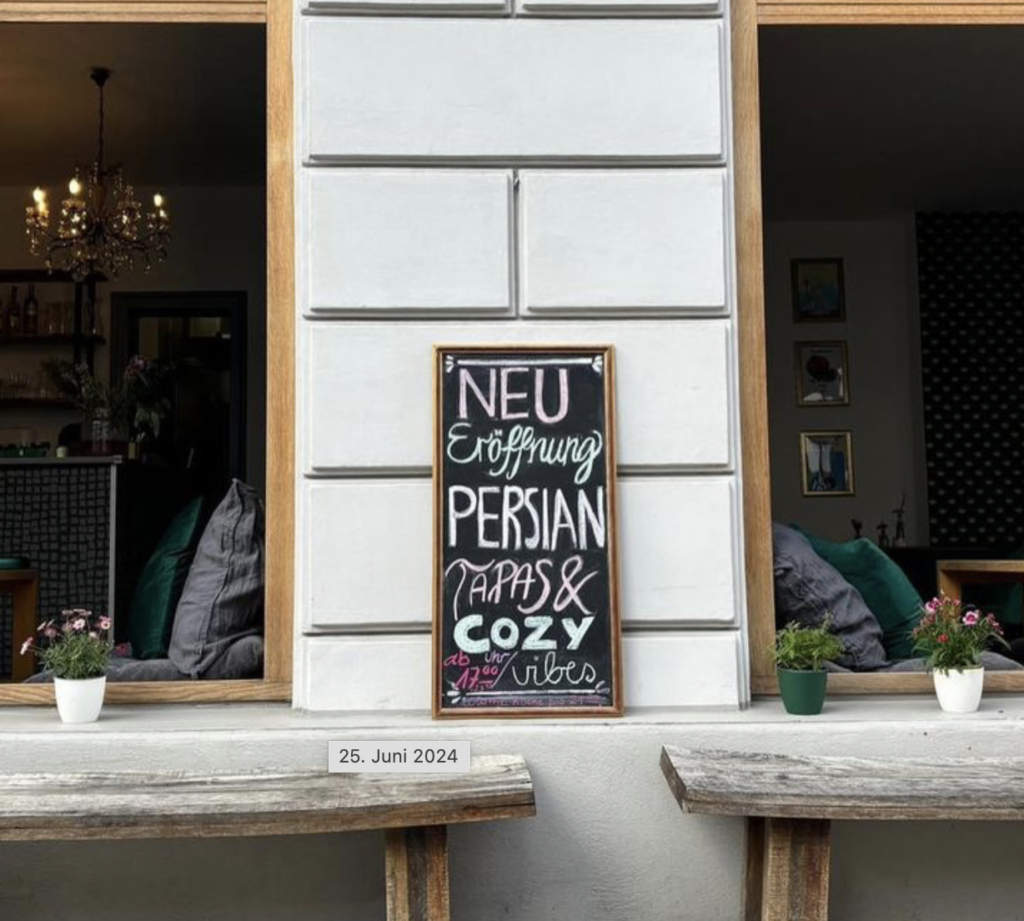 NEU
Eröffnung
PERSIAN
TAPAS &
COZY
ab 17⁰⁰ Uhr / vibes
25. Juni 2024